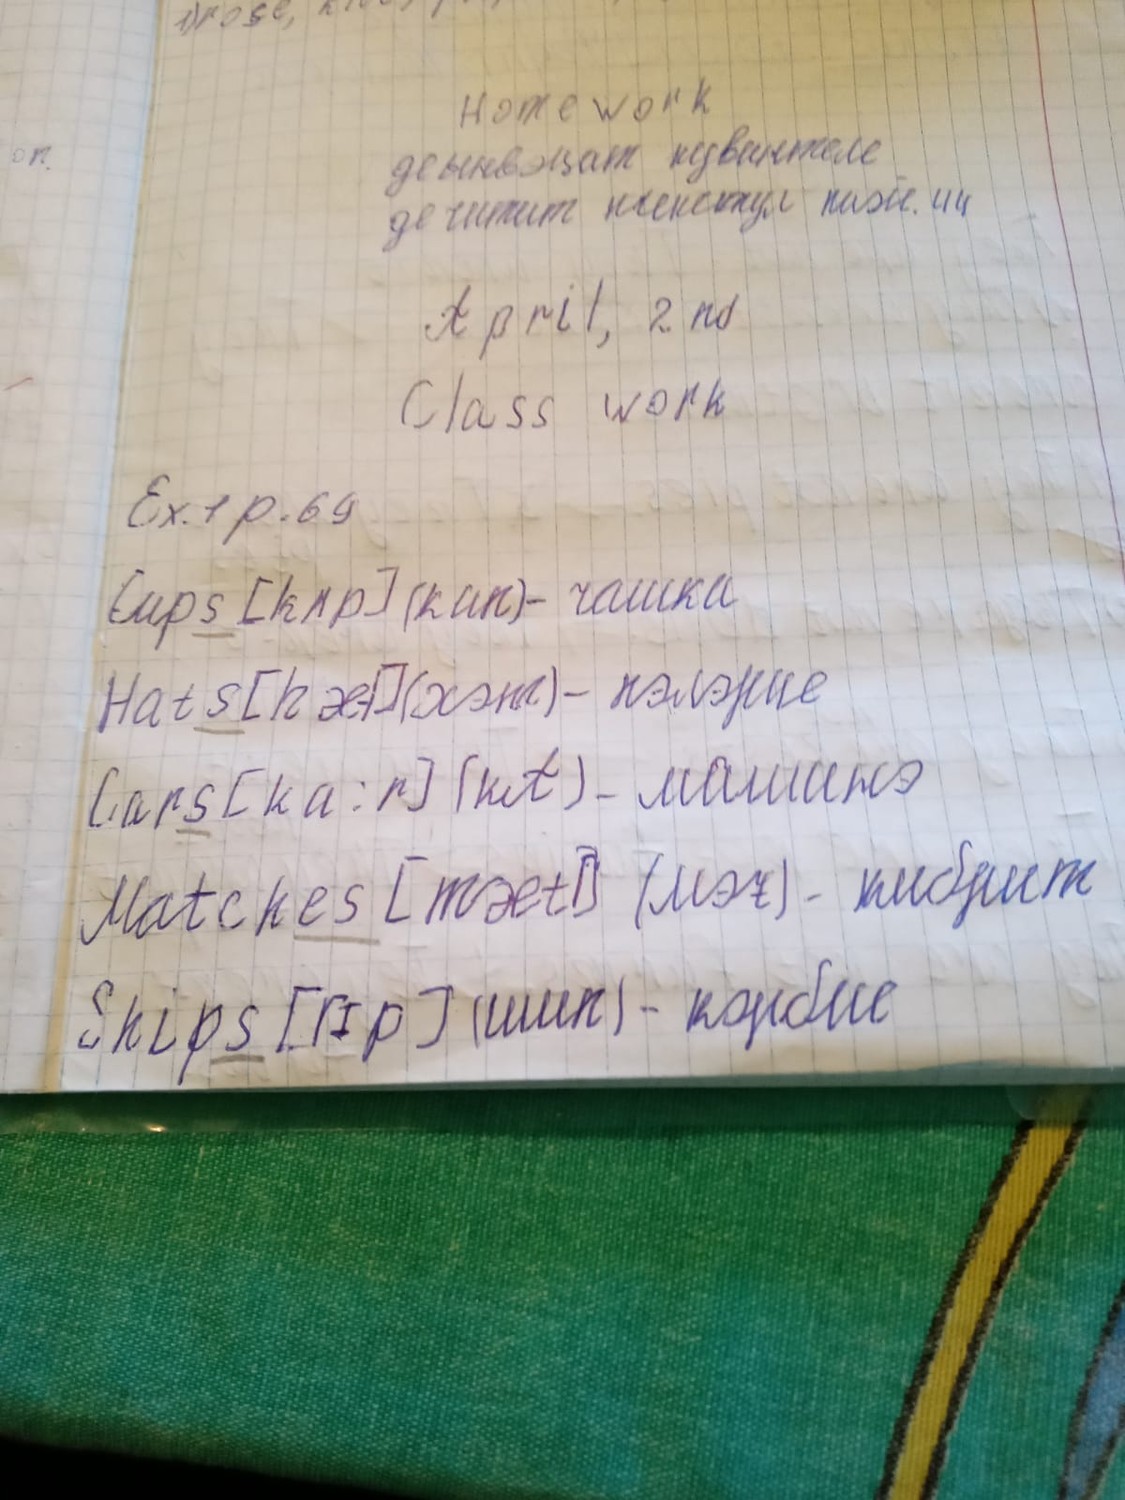 1) rose,
Home work
де ынвэцат кувинтеле
де читит
April, 2 nd
Class work
Ex.1 p.69
Cups [kʌp] (кап) – чашка
Hats [hæt] (хэт) – пэлэрие
Cars [ka:r] (кА) – машинэ
Matches [mætʃ] (мэч) – кибрит
Ships [ʃIp] (шип) – корабие